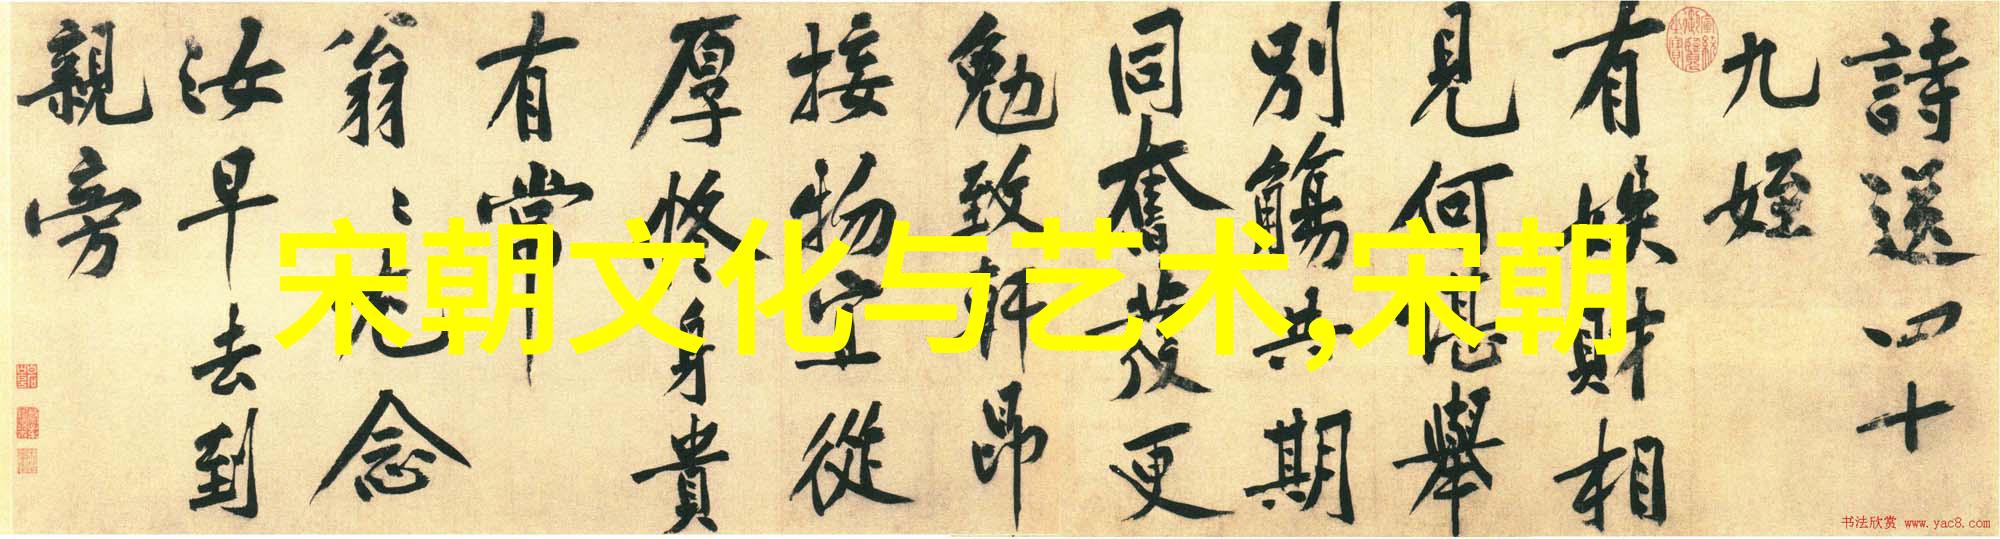 詩送四十
九姪
有財相
見何堪舉
別觴共期
同奮發更
勉致軒昂
接物宜從
厚脩身貴
有常
翁〻尤念
汝早去到
親旁
宋朝文化与艺术,宋朝
书法欣赏 www.yac8.com